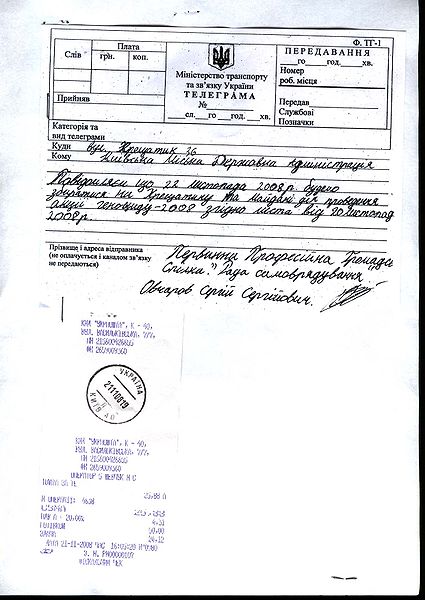 Ф. ТГ-1
Слів
Плата
грн.
коп.
Прийняв
Міністерство транспорту
та зв'язку України
ТЕЛЕГРАМА
№
сл. го год. хв.
ПЕРЕДАВАННЯ
го год. хв.
Номер
роб. місця
Передав
Службові
Позначки
Категорія та
вид телеграми
Куди вул. Хрещатик 36
Кому Київська міська Державна адміністрація
Повідомляєм що 22 листопада 2008р. будемо
на Хрещатику та Майдані для проведення
акції геноцид-2008 згідно листа від 20 листопад
2008р.
Прізвище і адреса відправника
(не оплачується і каналом зв'язку
не передаються)
Первинна Професійна Громади
Спілка "Рада самоврядування"
Овчаров Сергій Сергійович.
"УКРПОШТА", К - 40,
ВУЛ. ВАСИЛЬКІВСЬКА,
УКРАЇНА
21110819
КИЇВ 40
"УКРПОШТА", К - 40,
ВУЛ. ВАСИЛЬКІВСЬКА,
20,00%
4,31
50,00
24,12
21-11-2008 ЧАС